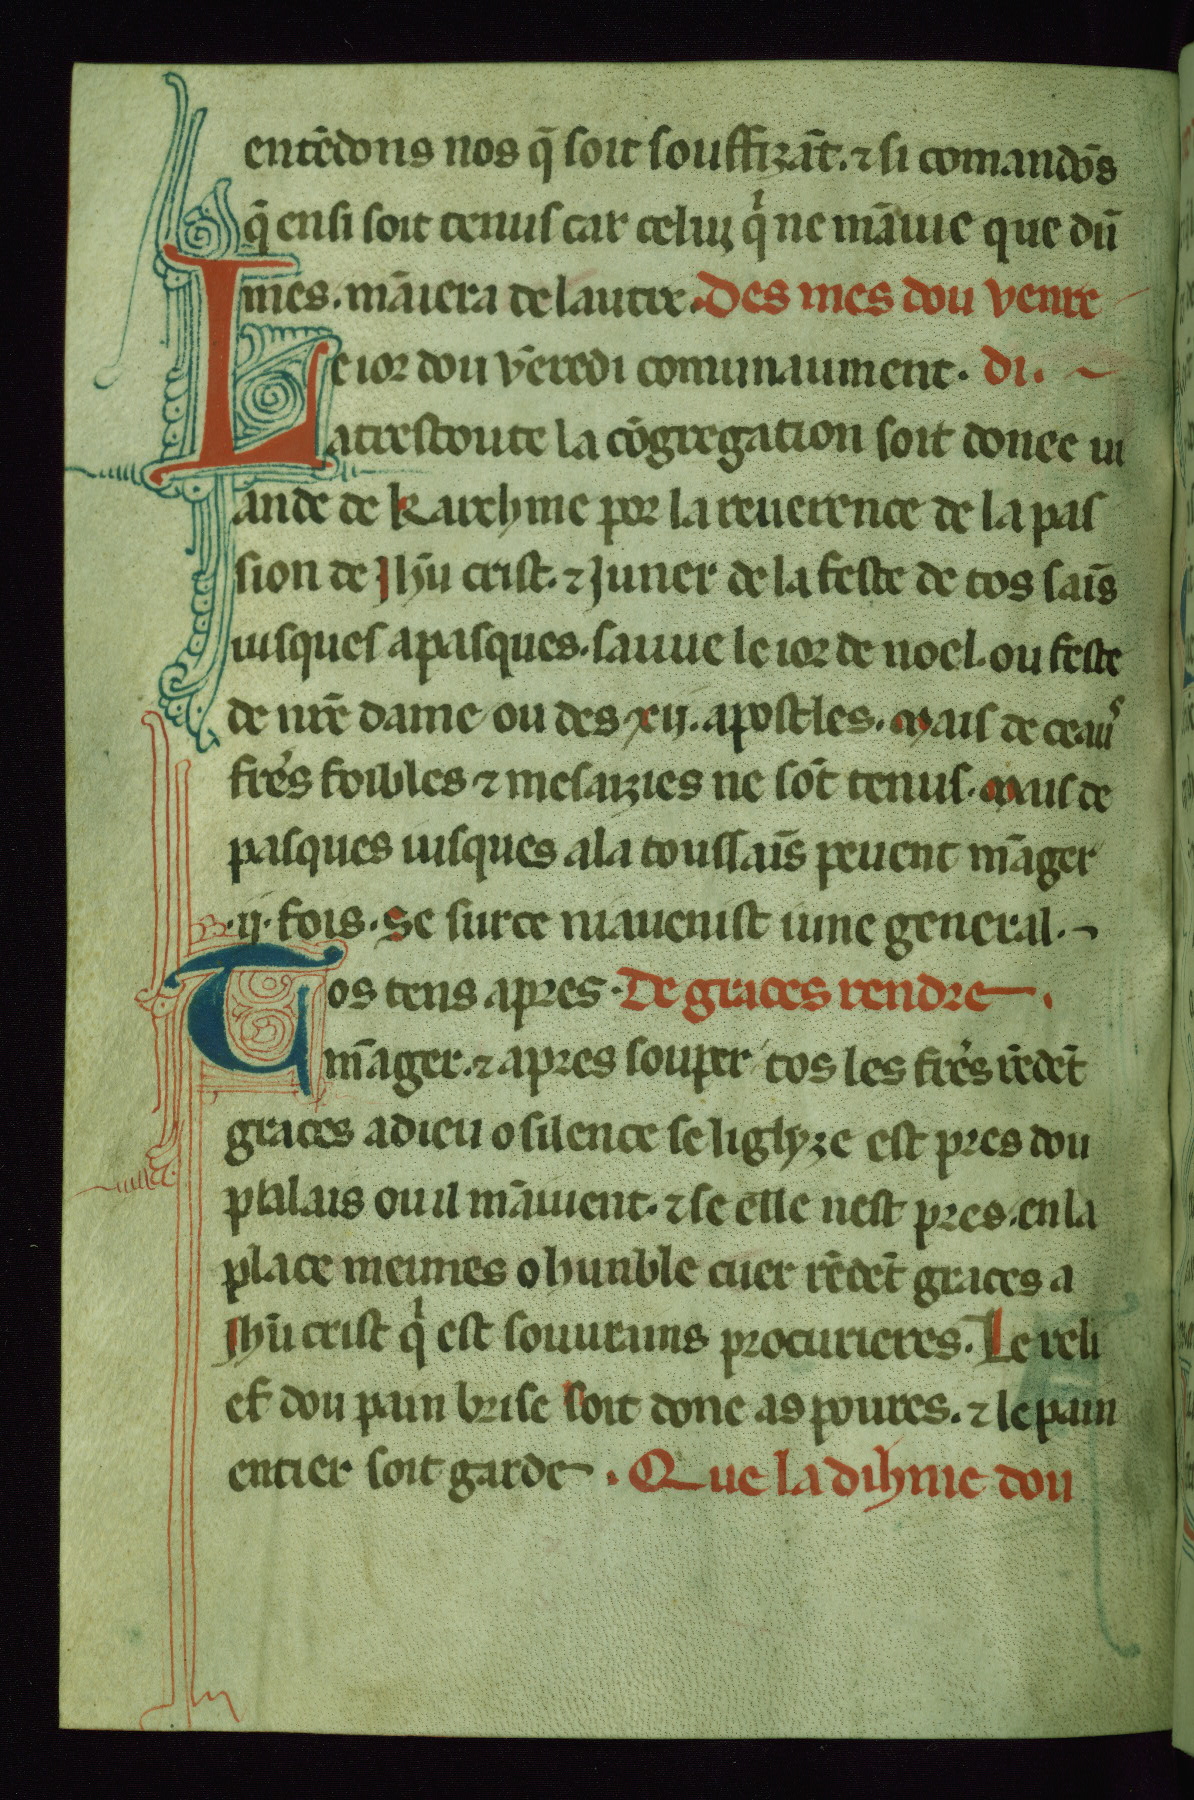 entēdons nos q̄ soit souffizāt. ⁊ si comandōs
q̄ ensi soit tenus car celui qͥ ne māiue que dū
mes. māiera de lautre. Des mes dou venre
Le ior dou vēredi comunaument. di.
a trestoute la cōgregation soit donee ui
ande de karehme por la reuerence de la pas
sion de Jhū crist. ⁊ Juner de la feste de tos saīs
iusques a pasques. sauue le ior de noel. ou feste
de nrē dame ou des xij. apostles. mais de ceauˢ
frēs foibles ⁊ mesaizies ne sōt tenus. mais de
pasques iusques ala toussaīs peuent māger
.ij. fois. Se sur ce ni auenist iune general.
Tos tens apres. De graces rendre.
māger. ⁊ apres souper tos les frēs rēdēt
graces a dieu o silence se liglyze est pres dou
palais ou il māiuent. ⁊ se elle nest pres. en la
place meimes o humble cuer rēdēt graces a
Jhū crist qͥ est souurains procurieres. Le reli
ef dou pain brise soit done as poures. ⁊ le pain
entier soit garde. Que la dihme dou